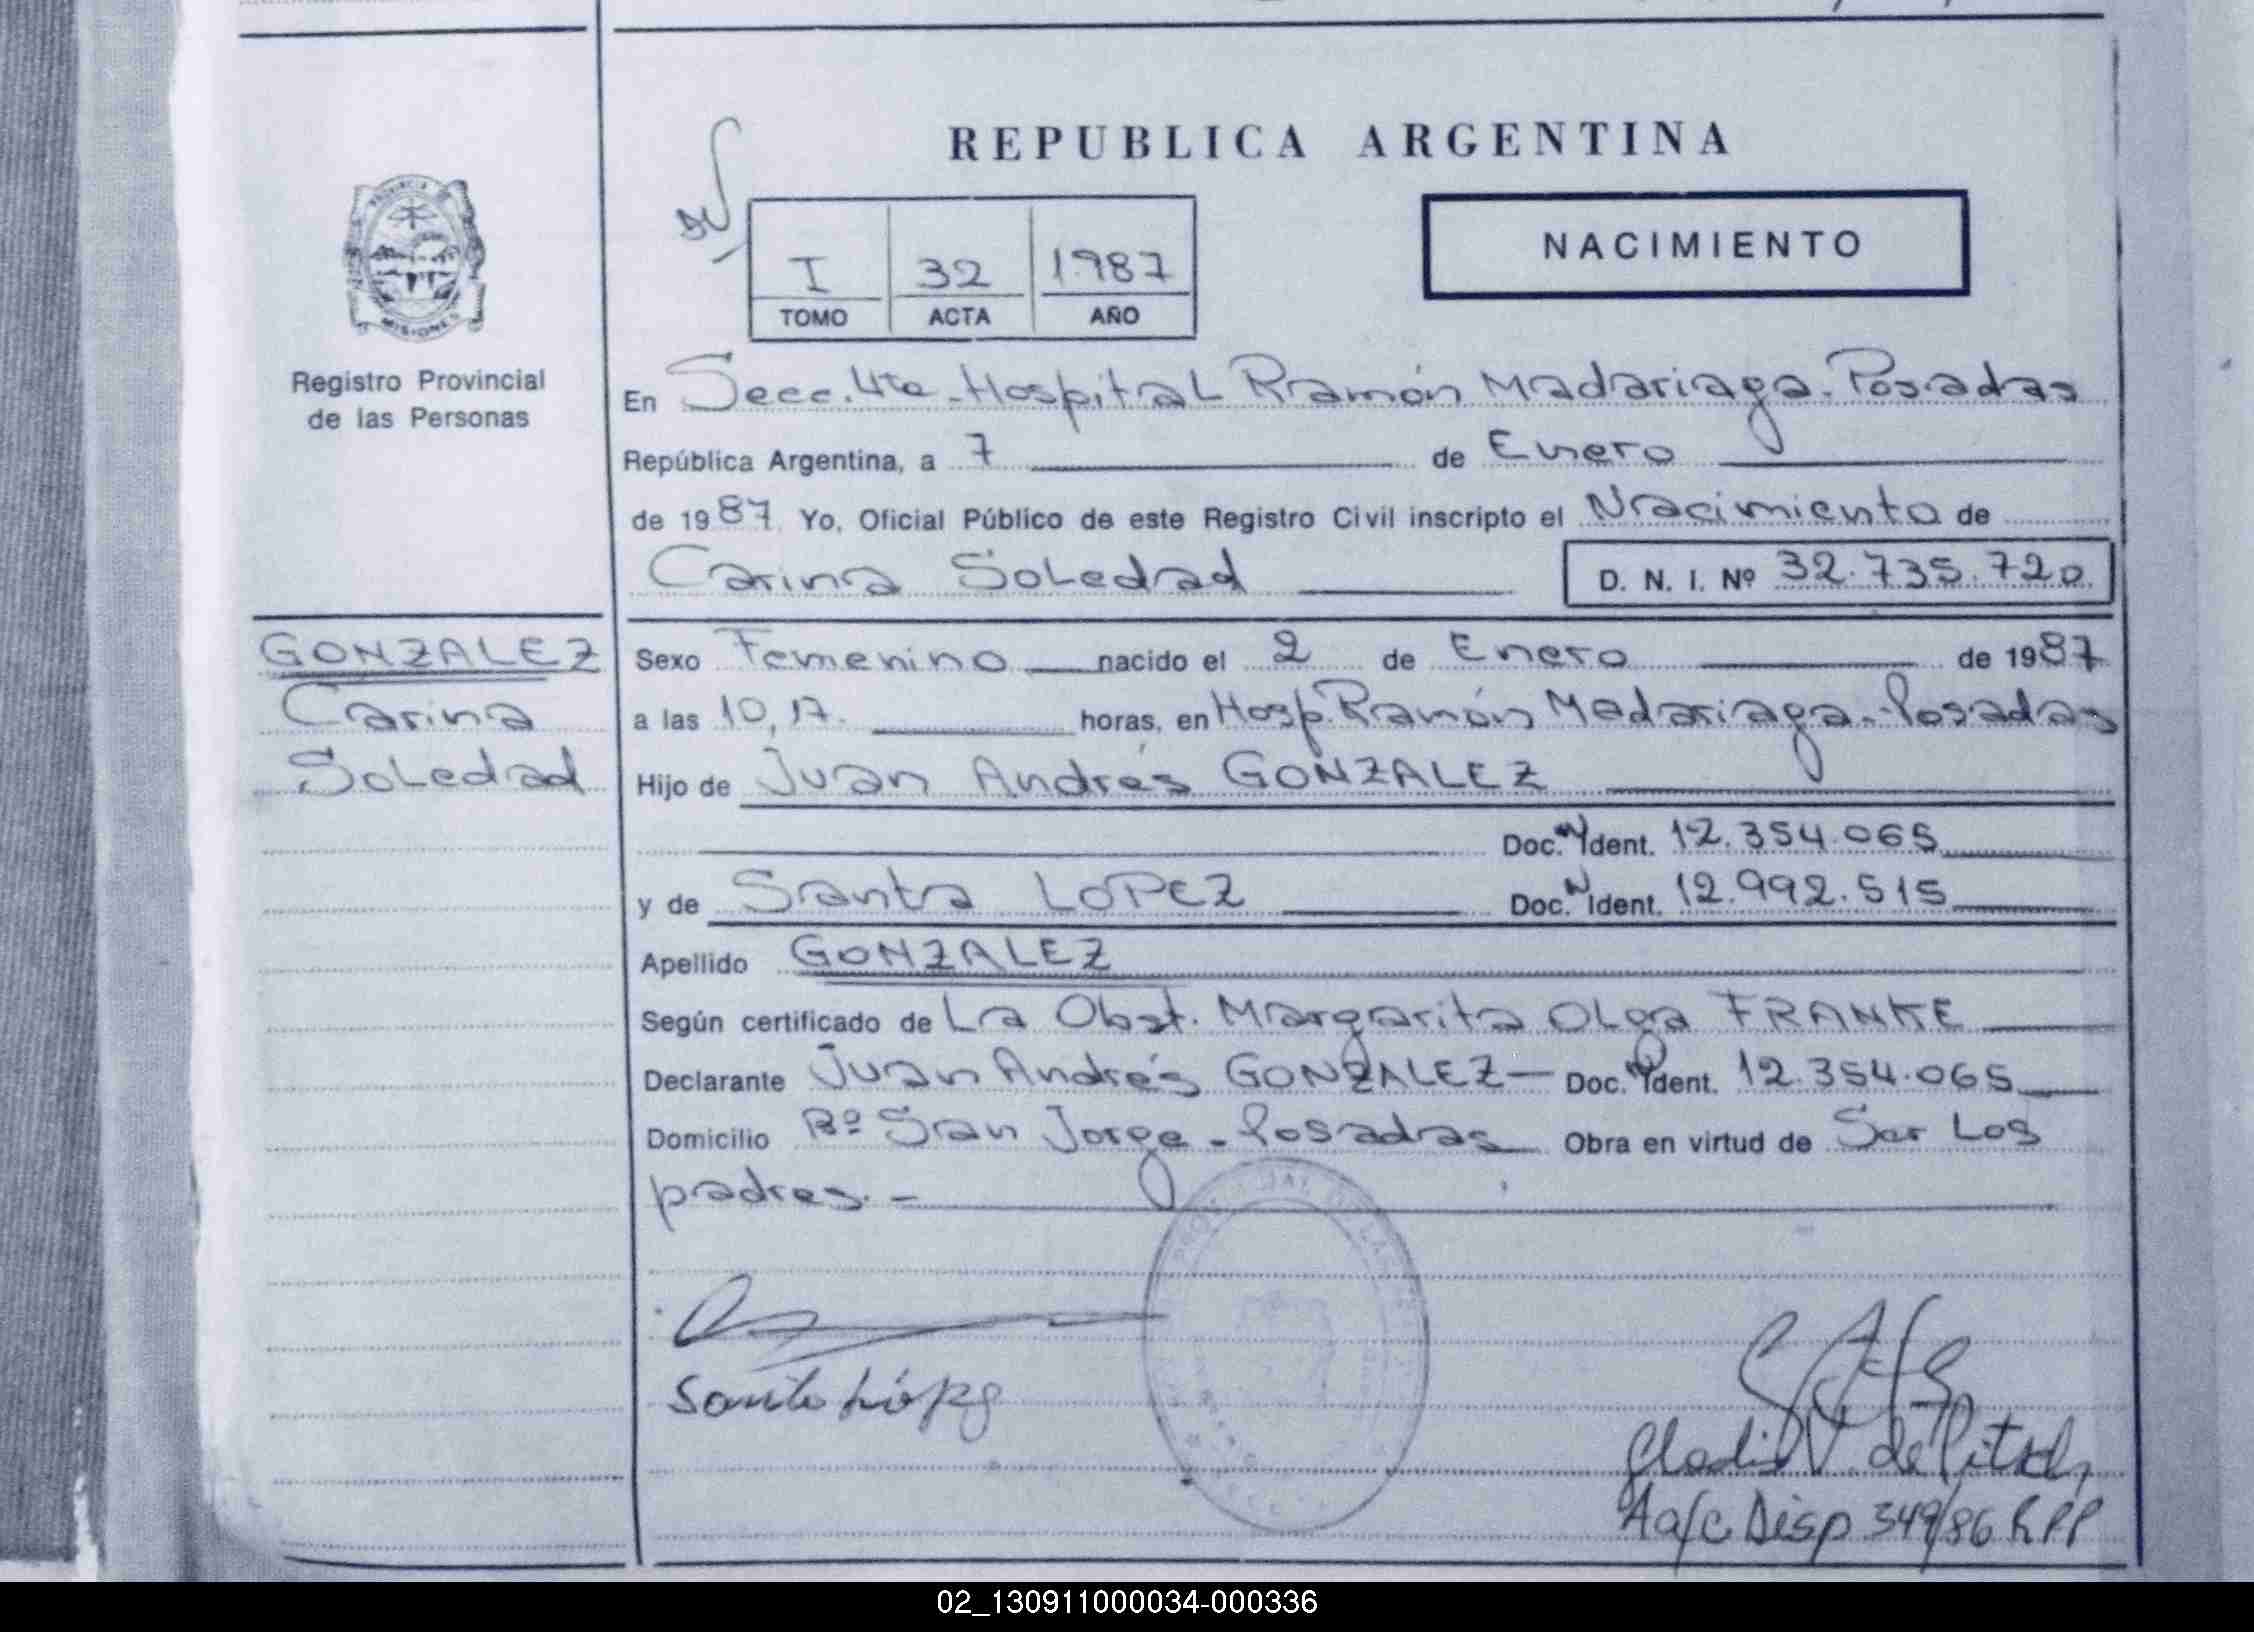 REPUBLICA ARGENTINA
NACIMIENTO
I 32 1987
TOMO ACTA AÑO
PROVINCIA
MISIONES
Registro Provincial
de las Personas
En Secc. 4ta - Hospital Ramón Madariaga - Posadas
República Argentina, a 7 de Enero
de 1987 Yo, Oficial Público de este Registro Civil inscripto el Nacimiento de
Carina Soledad D. N. I. Nº 32.735.720
GONZALEZ
Carina
Soledad
Sexo Femenino nacido el 2 de Enero de 1987
a las 10,17. horas, en Hosp. Ramón Madariaga - Posadas
Hijo de Juan Andrés GONZALEZ
Doc. Ident. 12.354.065
y de Santa LOPEZ Doc. N Ident. 12.992.515
Apellido GONZALEZ
Según certificado de La Obst. Margarita Olga FRANKE
Declarante Juan Andrés GONZALEZ — Doc. Ident. 12.354.065
Domicilio Bº San Jorge - Posadas Obra en virtud de Ser Los
padres. -
Santa López
de
A a/c Disp 349/86 RPP
02_130911000034-000336